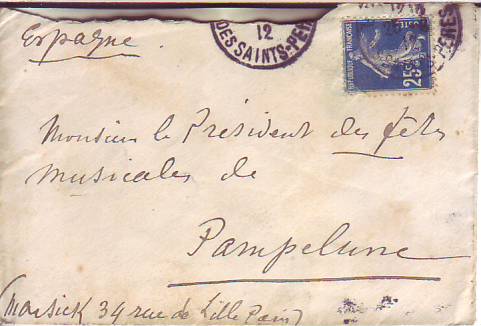 Espagne.
12
DES SAINTS-PÈR
RÉPUBLIQUE FRANÇAISE
25c
Monsieur le Président des fêtes
musicales de
Pampelune
(Marsick 34 rue de Lille Paris)